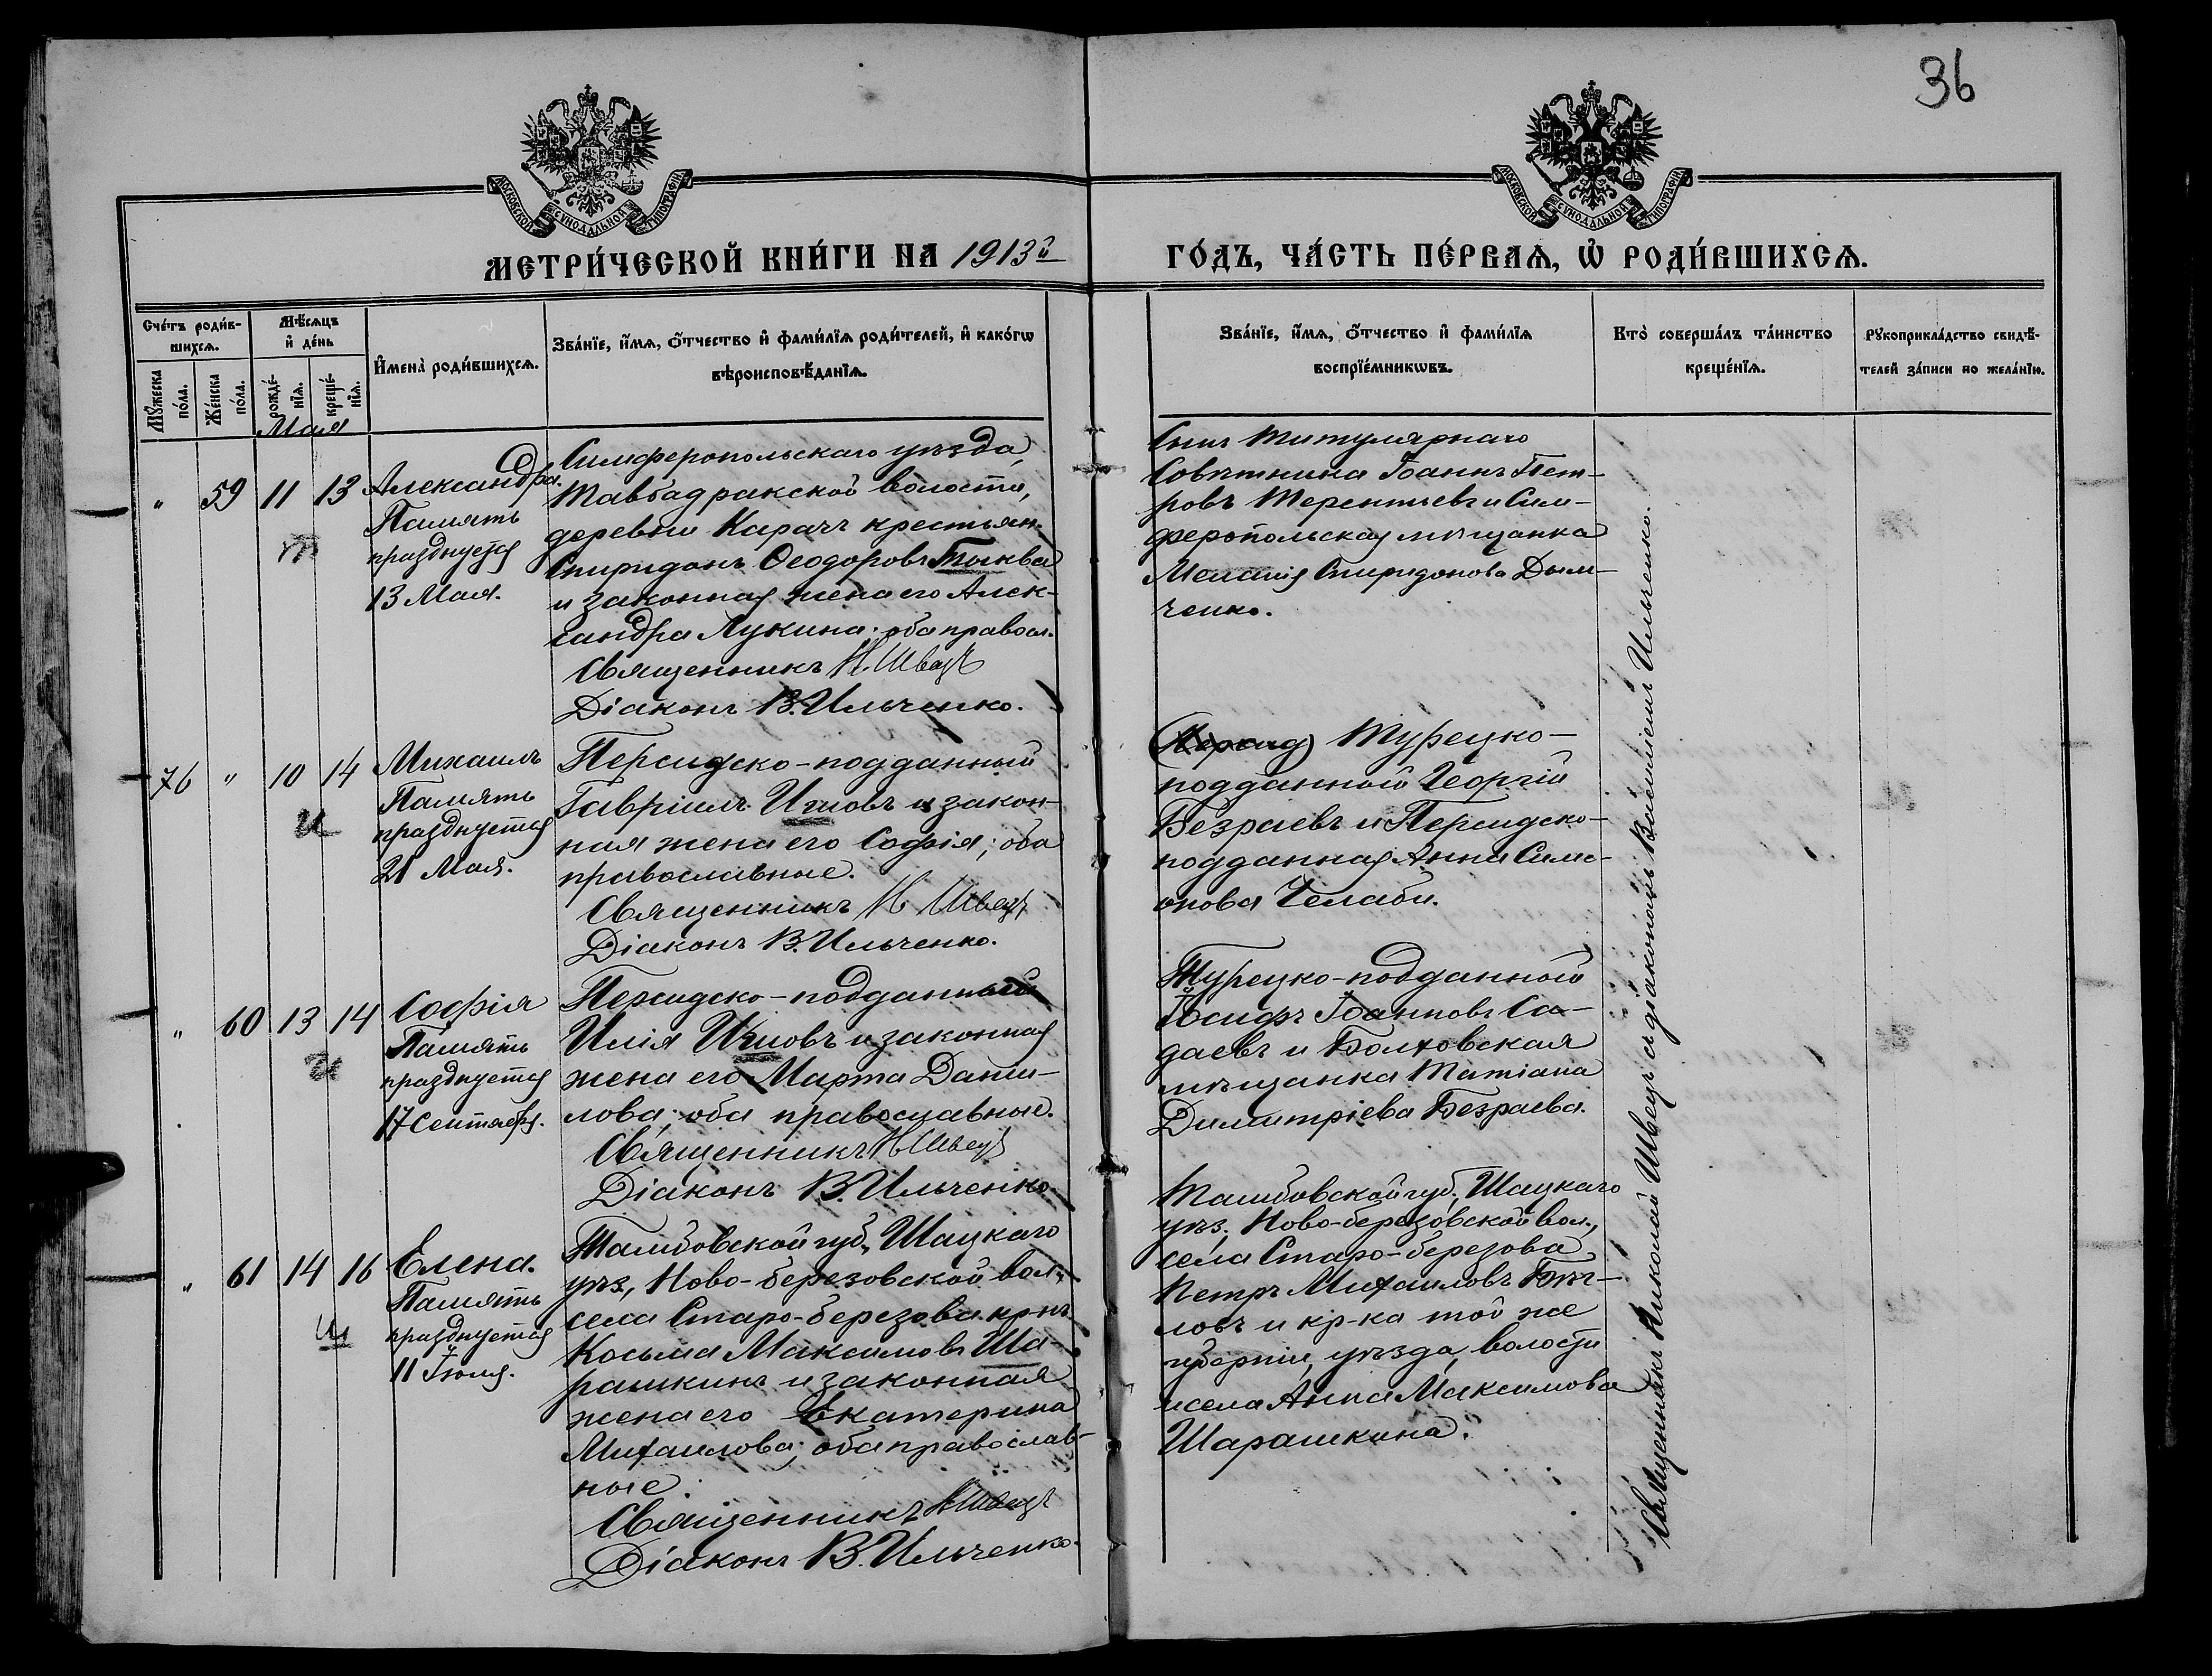 36
МОСКОВСКОЙ СѴНОДАЛЬНОЙ ТИПОГРАФІИ
МОСКОВСКОЙ СѴНОДАЛЬНОЙ ТИПОГРАФІИ
МЕТРИ́ЧЕСКОЙ КНИ́ГИ НА 1913й
ГО́ДЪ, ЧА́СТЬ ПЕ́РВАѦ, Ѡ҆ РОДИ́ВШИХСѦ.
Сче́тъ роди́в-
шихсѧ.
Мꙋ́жеска по́ла.
Же́нска по́ла.
Мѣ́сѧцъ
и҆ де́нь
рожде́-
нїѧ.
креще́-
нїѧ.
И҆мена̀ роди́вшихсѧ.
Зва́нїе, и҆́мѧ, ѻ҆́тчество и҆ фами́лїѧ роди́телей, и҆ како́гѡ
вѣроисповѣ́данїѧ.
Зва́нїе, и҆́мѧ, ѻ҆́тчество и҆ фами́лїѧ
воспрїе́мникѡвъ.
Кто̀ соверша́лъ та́инство
креще́нїѧ.
Рꙋкоприкла́дство свидѣ́-
телей за́писи по жела́нїю.
Мая
" 59 11 13
т
Александра.
Память
празднуется
13 Мая.
Симферопольскаго уѣзда,
Тавбадракской волости,
деревни Карачъ крестьян.
Спиридонъ Ѳеодоровъ Тыква
и законная жена его Алек-
сандра Лукина; оба правосл.
Священникъ Н. Швецъ
Діаконъ В. Ильченко.
Сынъ титулярнаго
Совѣтника Іоаннъ Пет-
ровъ Терентьевъ и Сим-
феропольская мѣщанка
Меланія Спиридонова Дым-
ченко.
76 " 10 14
и
Михаилъ
Память
празднуется
21 Мая.
Персидско-подданный
Гавріилъ Ишовъ и закон-
ная жена его Софія; оба
православные.
Священникъ Н Швецъ
Діаконъ В. Ильченко.
(Персид) Турецко-
подданной Георгій
Безраевъ и Персидско-
подданная Анна Симе-
онова Челаби.
" 60 13 14
и
Софія
Память
празднуется
17 Сентября.
Персидско-подданный
Илія Ишовъ и законная
жена его Марта Дани-
лова; оба православные.
Священникъ Н Швецъ
Діаконъ В. Ильченко.
Турецко-подданной
Іосифъ Іоанновъ Са-
даевъ и Болховская
мѣщанка Татіана
Димитріева Безраева.
" 61 14 16
ш
Елена.
Память
празднуется
11 Іюля.
Тамбовской губ., Шацкаго
уѣз., Ново-березовской вол.,
села Старо-березова кр-нъ
Косьма Максимовъ Ша-
рашкинъ и законная
жена его Екатерина
Михаилова; оба православ-
ные.
Священникъ Н Швецъ
Діаконъ В. Ильченко.
Тамбовской губ., Шацкаго
уѣз., Ново-березовской вол.,
села Старо-березова
Петръ Михаиловъ Бѣг-
ловъ и кр-ка той же
губерніи, уѣзда, волости
и села Анна Максимова
Шарашкина.
Священникъ Николай Швецъ съ діакономъ Василіемъ Ильченко.